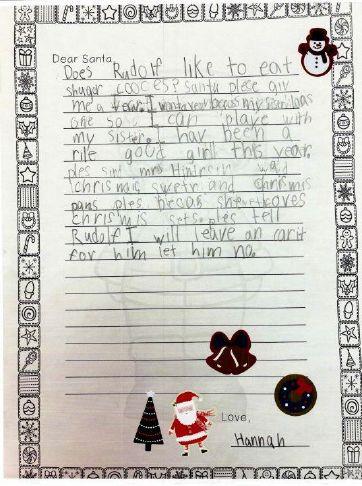 Dear Santa,
Does Rudolf like to eat
shugar COOCES? Santa plese giv
me a
one so I can playe with
my sister. I hav been a
rile good girl this year.
ples sind mrs
Chrismis swetr and Chrismis
pans ples becas
Chrismis sets. ples tell
Rudolf I will leave an carit
for him let him no.
Love,
Hannah